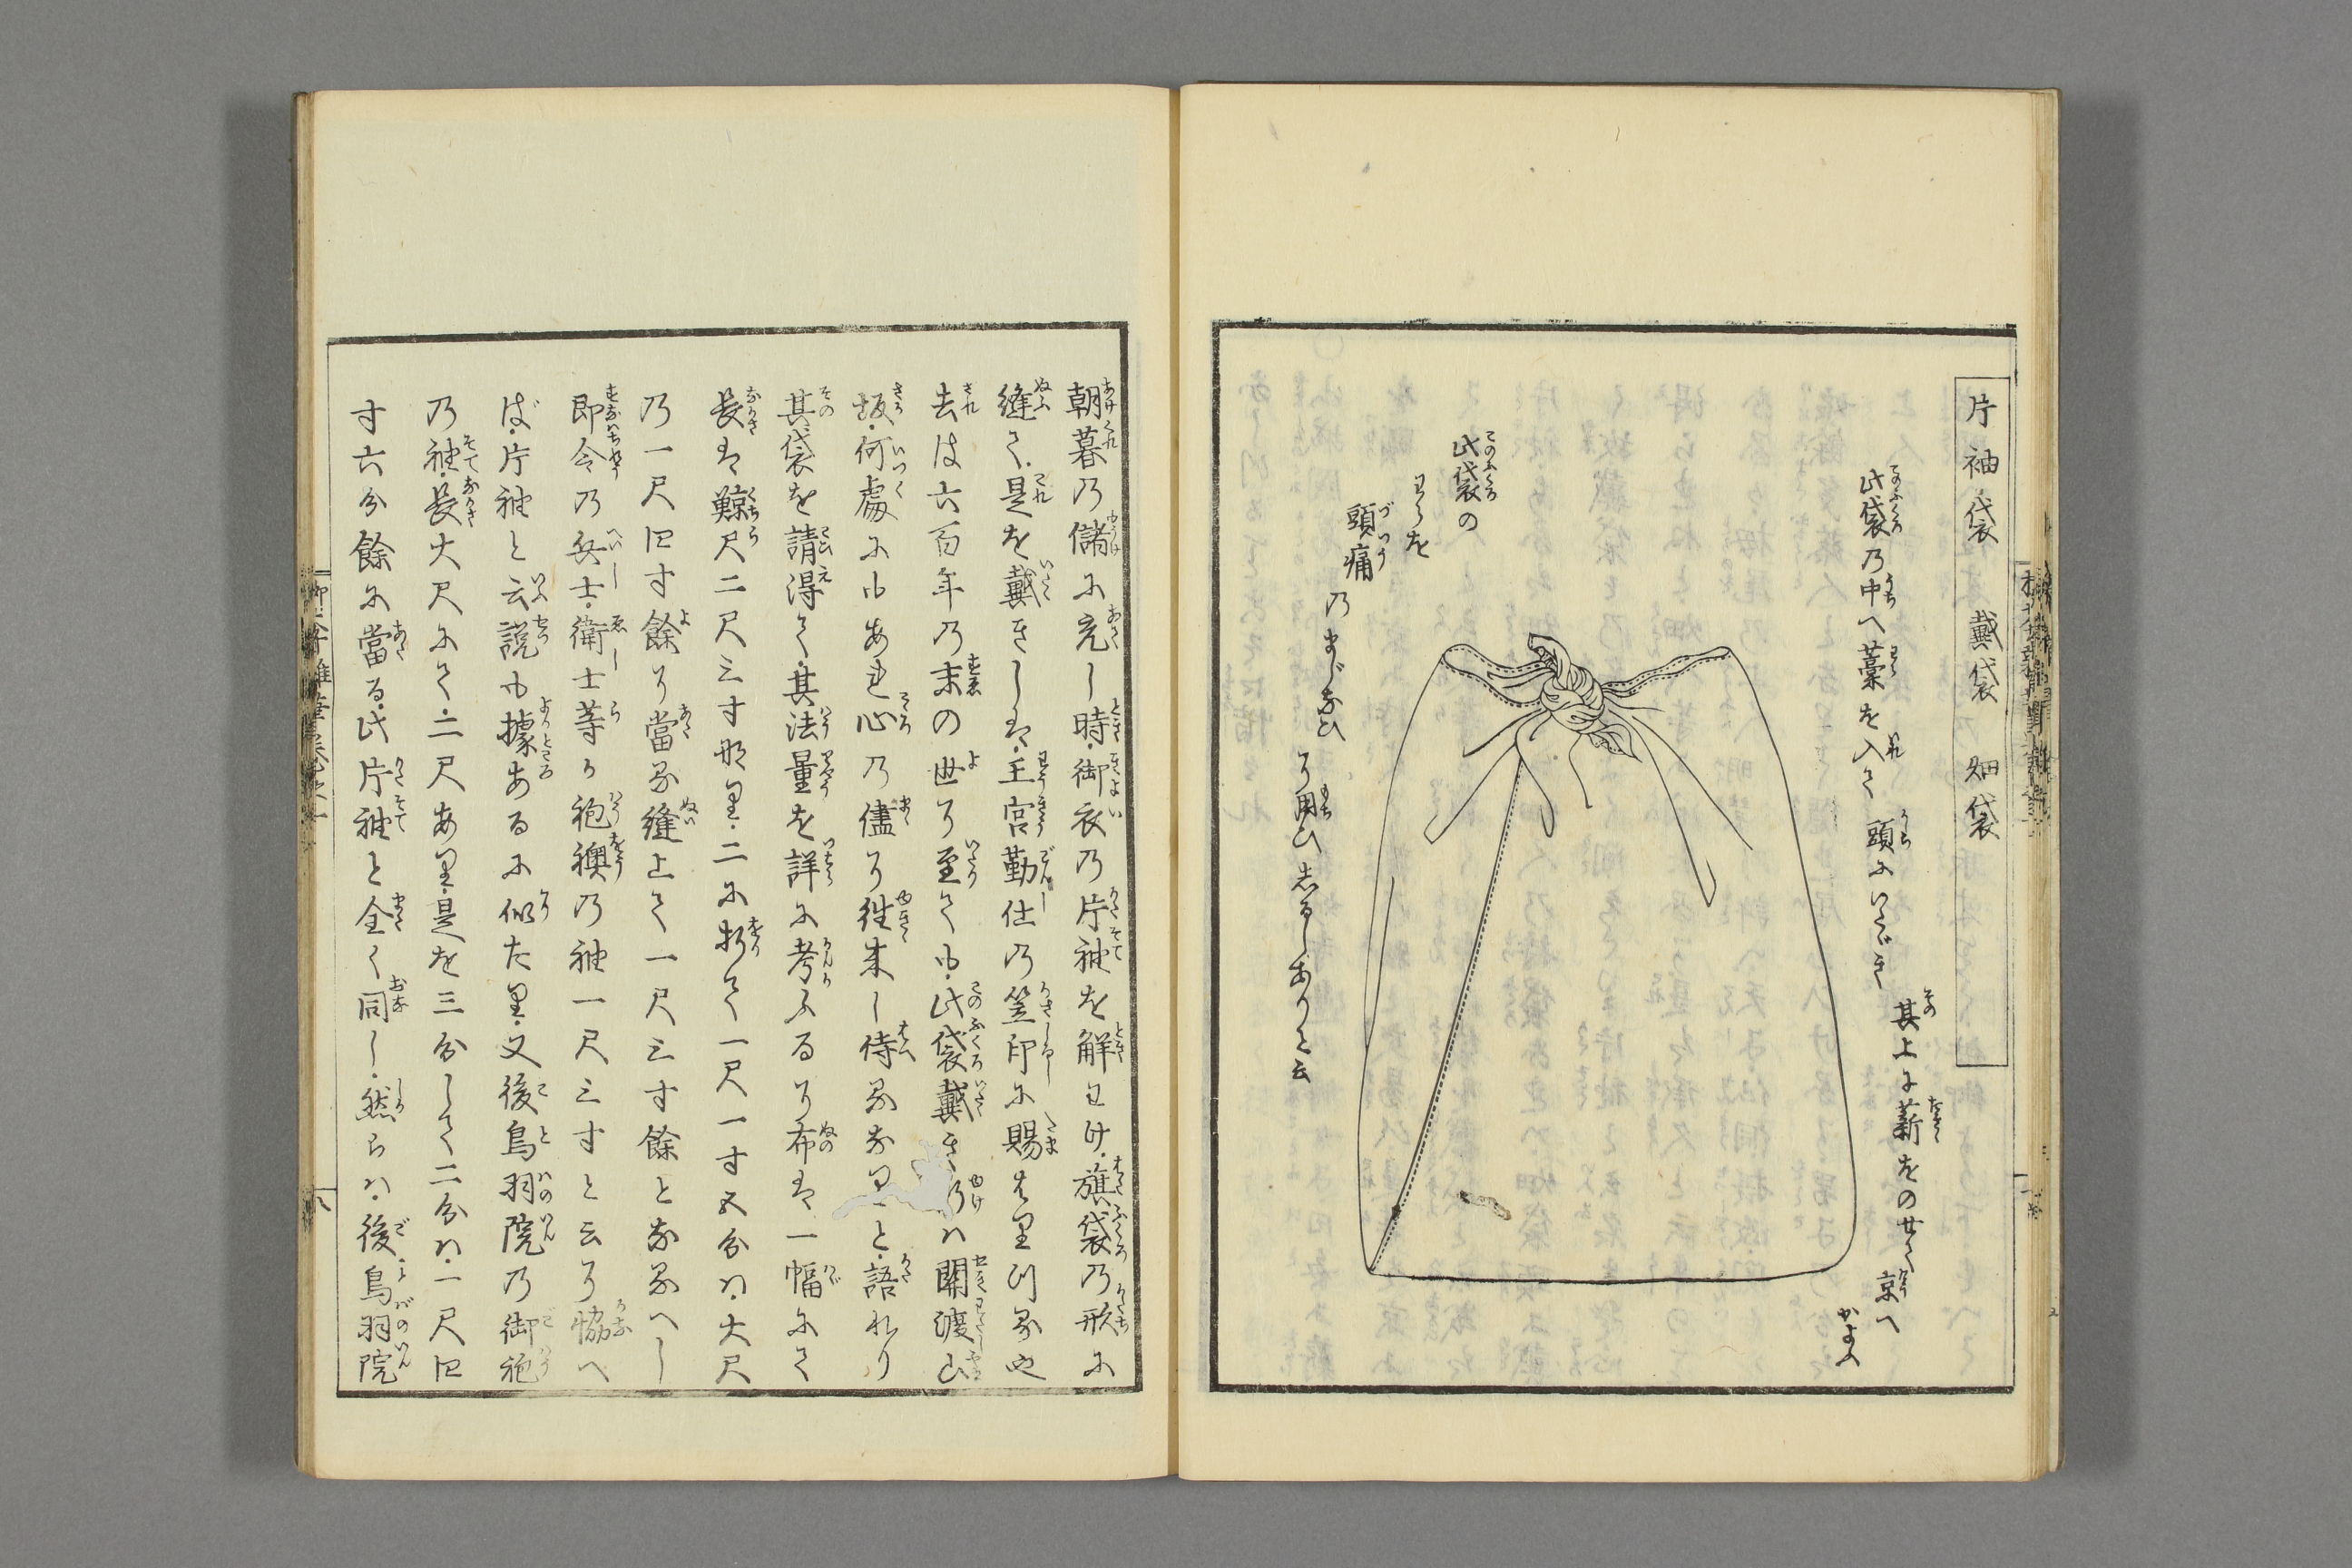 片袖袋 戴袋 畑袋
此袋乃中へ藁を入て 頭にいたゞき
其上に薪をのせて 京へ
かよふ
此袋の
わらを
頭痛
乃まじなひ
に用ひ志るしありと云
朝暮乃儲に充し時御衣乃片袖を解わけ旗袋乃形に
縫て是を戴きしは王宮勤仕乃笠印に賜はりつる也
去は六百年乃末の世に至ても此袋戴き乃ハ関渡し
坂何處にもあれ心乃儘に徃来し侍るなりと語れり
其袋を請得て其法量を詳に考ふるに布は一幅にて
長は鯨尺二尺三寸有り二に折て一尺一寸五分ハ大尺
乃一尺四寸餘に當る縫上て一尺三寸餘となるへし
即今乃兵士衛士等か袍襖乃袖一尺三寸と云に協へ
ば片袖と云説も據あるに似たり又後鳥羽院乃御袍
乃袖長大尺にて二尺あり是を三分して二分ハ一尺四
寸六分餘に當る此片袖と全く同し然らハ後鳥羽院